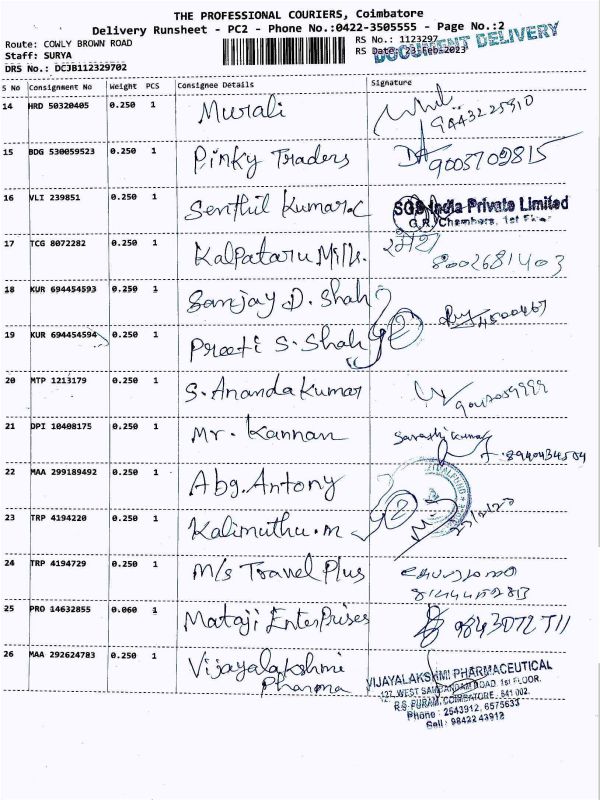 THE PROFESSIONAL COURIERS, Coimbatore
Delivery Runsheet - PC2 - Phone No.:0422-3505555 - Page No.:2
DOCUMENT DELIVERY
Route: COWLY BROWN ROAD
RS No.: 1123297
Staff: SURYA
RS Date: 23-Feb-2023
DRS No.: DCJB112329702
S No Consignment No Weight PCS Consignee Details Signature
14 HRD 50320405 0.250 1 Murali
9443225910
15 BDG 530059523 0.250 1 Pinky Traders 9003702815
16 VLI 239851 0.250 1 Senthil Kumar.C SGS India Private Limited
G.R. Chambers, 1st Floor
17 TCG 8072282 0.250 1 Kalpataru Mills. 8002681403
18 KUR 694454593 0.250 1 Sanjay D. Shah
19 KUR 694454594 0.250 1 Preeti S. Shah 2
20 MTP 1213179 0.250 1 S. Ananda Kumar
21 DPI 10408175 0.250 1 Mr. Kannan
22 MAA 299189492 0.250 1 Abg. Antony
23 TRP 4194220 0.250 1 Kalimuthu.m 2
24 TRP 4194729 0.250 1 M/s Travel Plus
25 PRO 14632855 0.060 1 Mataji EnterPrises
26 MAA 292624783 0.250 1 Vijayalakshmi
Pharma
VIJAYALAKSHMI PHARMACEUTICAL
127, WEST SAMBANDAM ROAD, 1st FLOOR,
R.S. PURAM, COIMBATORE - 641 002.
Phone : 2543912, 6575633
Cell : 98422 43912